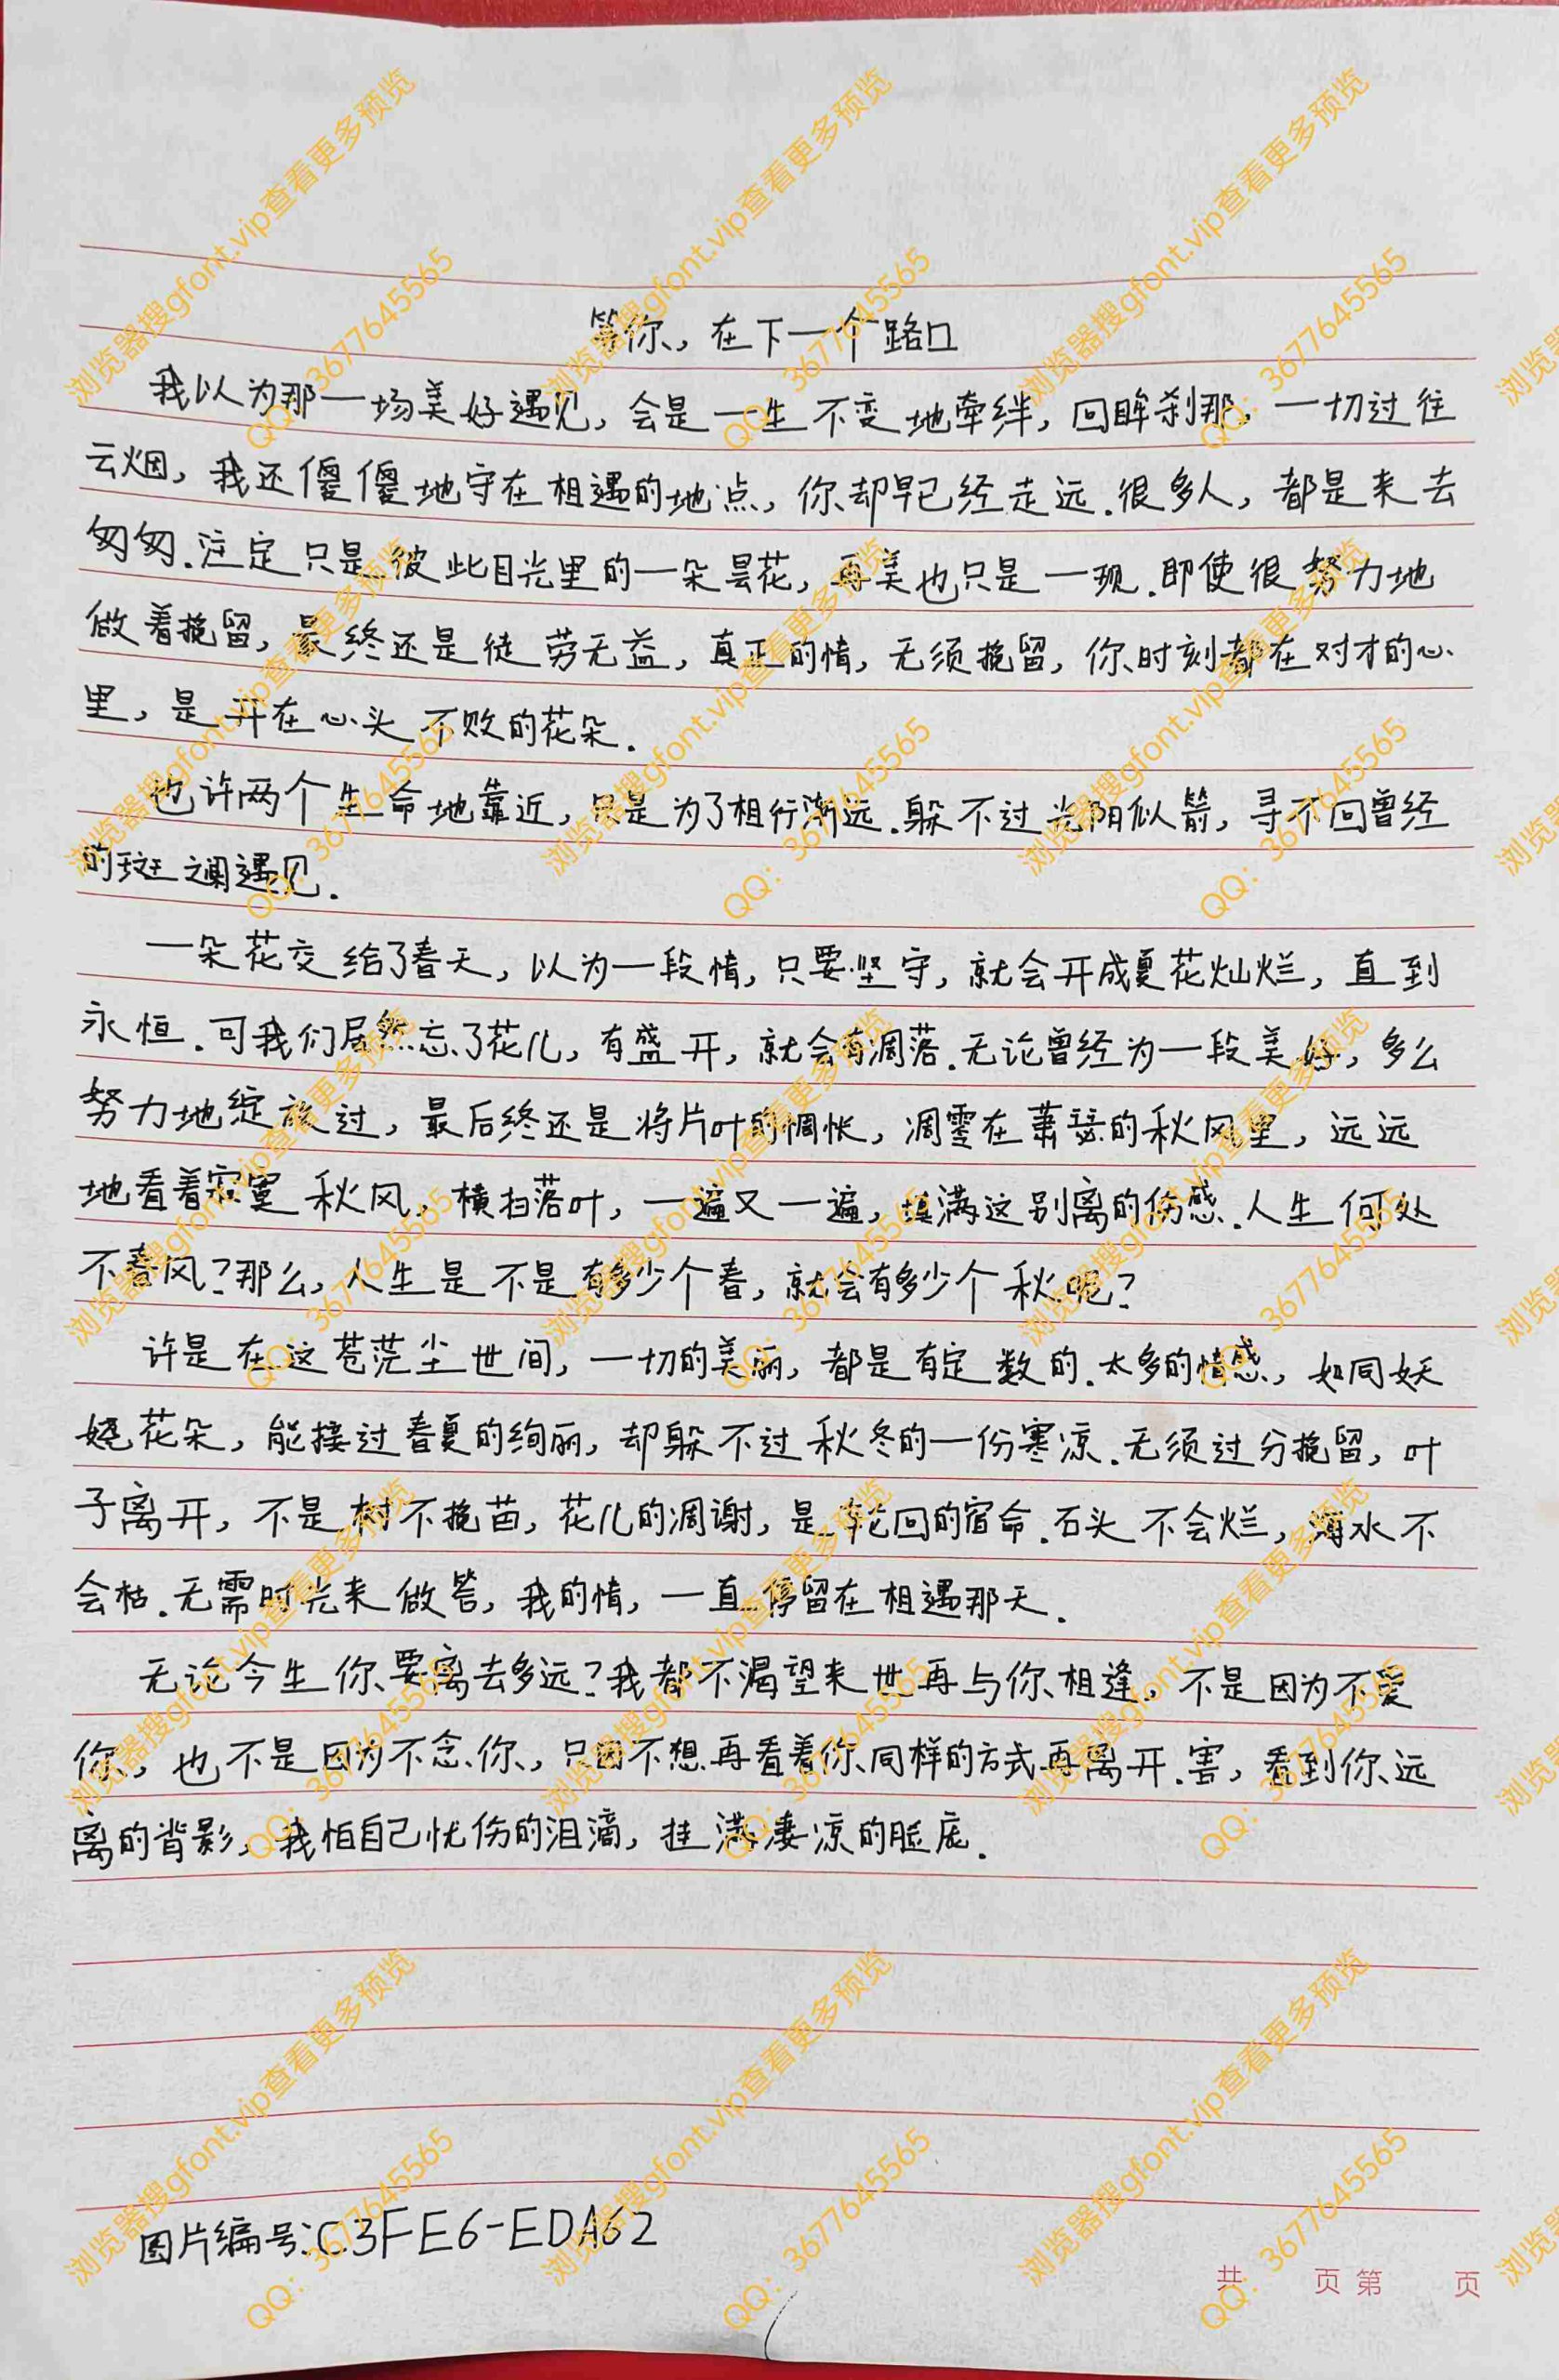 等你，在下一个路口
我以为那一场美好遇见，会是一生不变地牵绊，回眸刹那，一切过往
云烟，我还傻傻地守在相遇的地点，你却早已经走远.很多人，都是来去
匆匆.注定只是彼此目光里的一朵昙花，再美也只是一现.即使很努力地
做着挽留，最终还是徒劳无益，真正的情，无须挽留，你时刻都在对才的心
里，是开在心头不败的花朵.
也许两个生命地靠近，只是为了相行渐远.躲不过光阴似箭，寻不回曾经
的斑斓遇见.
一朵花交给了春天，以为一段情，只要坚守，就会开成夏花灿烂，直到
永恒.可我们居然忘了花儿，有盛开，就会有凋落.无论曾经为一段美好，多么
努力地绽放过，最后终还是将片叶的惆怅，凋零在萧瑟的秋风里，远远
地看着寂寞秋风，横扫落叶，一遍又一遍，填满这别离的伤感.人生何处
不春风?那么，人生是不是有多少个春，就会有多少个秋呢?
许是在这苍茫尘世间，一切的美丽，都是有定数的.太多的情感，如同妖
娆花朵，能接过春夏的绚丽，却躲不过秋冬的一份寒凉.无须过分挽留，叶
子离开，不是树不挽苗，花儿的凋谢，是轮回的宿命.石头不会烂，海水不
会枯.无需时光来做答，我的情，一直停留在相遇那天.
无论今生你要离去多远?我都不渴望来世再与你相逢，不是因为不爱
你，也不是因为不念你，只因不想再看着你同样的方式再离开.害，看到你远
离的背影，我怕自己忧伤的泪滴，挂满凄凉的脸庞.
图片编号:C3FE6-EDA62
共 页 第 页
浏览器搜gfont.vip查看更多预览
QQ：3677645565